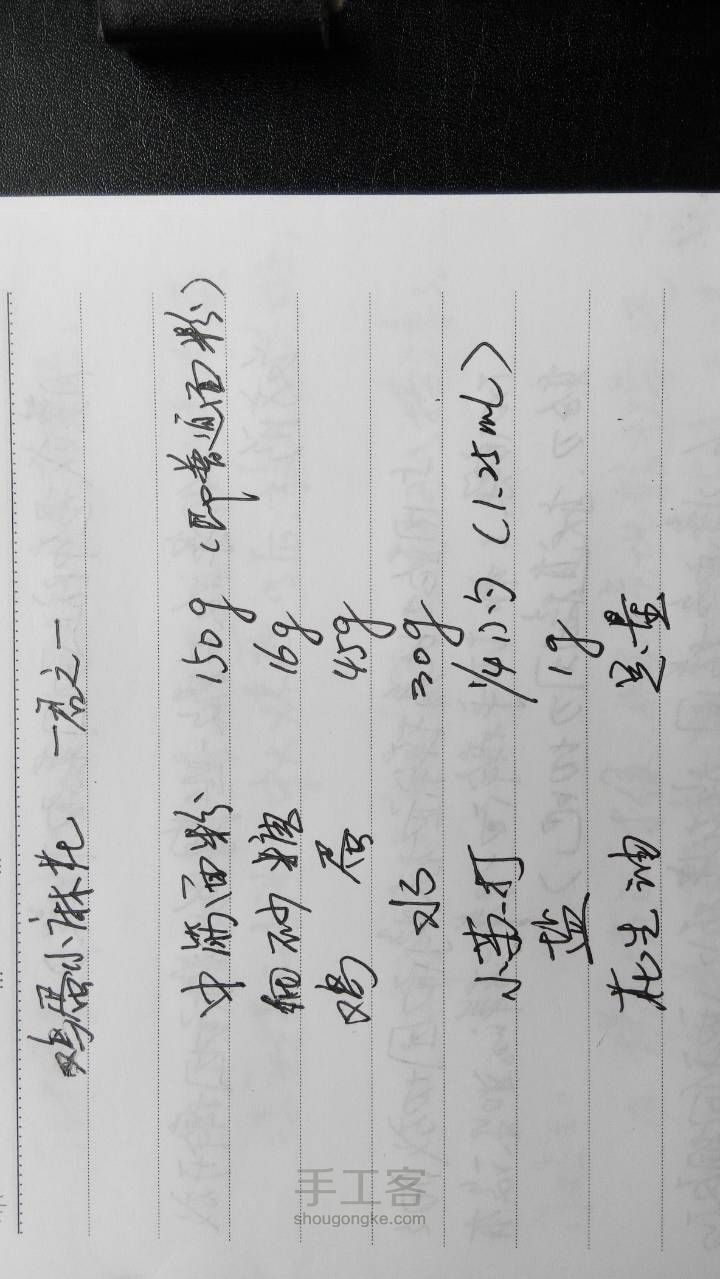 鸡蛋小麻花 一君之一
中筋面粉 150g (即普通面粉)
细砂糖 16g
鸡蛋 45g
水 30g
小苏打 1/4小勺 (1.25ml)
盐 1g
花生油 适量
手工客
shougongke.com